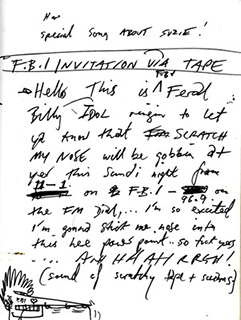 Now
special Song ABOUT SUZIE!
F.B.I INVITATION VIA TAPE
Hello This is Feral
Billy IDOL ringin to let
ya know that SCRATCH
MY NOSE will be gobbin at
yer this Sundi night from
on F.B.I - 96.9 on
the FM Dial,... I'm so excited
I'm gonna stick me nose into
this hee point.. so fuck yers
.... AHH HH AH RRGH!
(sound of scratchy tape + )